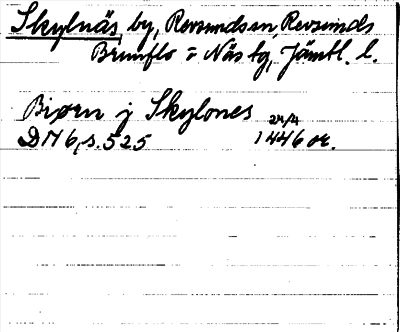 Skylnäs, by, Revsunds sn, Revsunds
Brunflo o Näs tg, Jämtl. l.
Biørn j Skylones
24/4
DN 6, s. 525 1446 or.